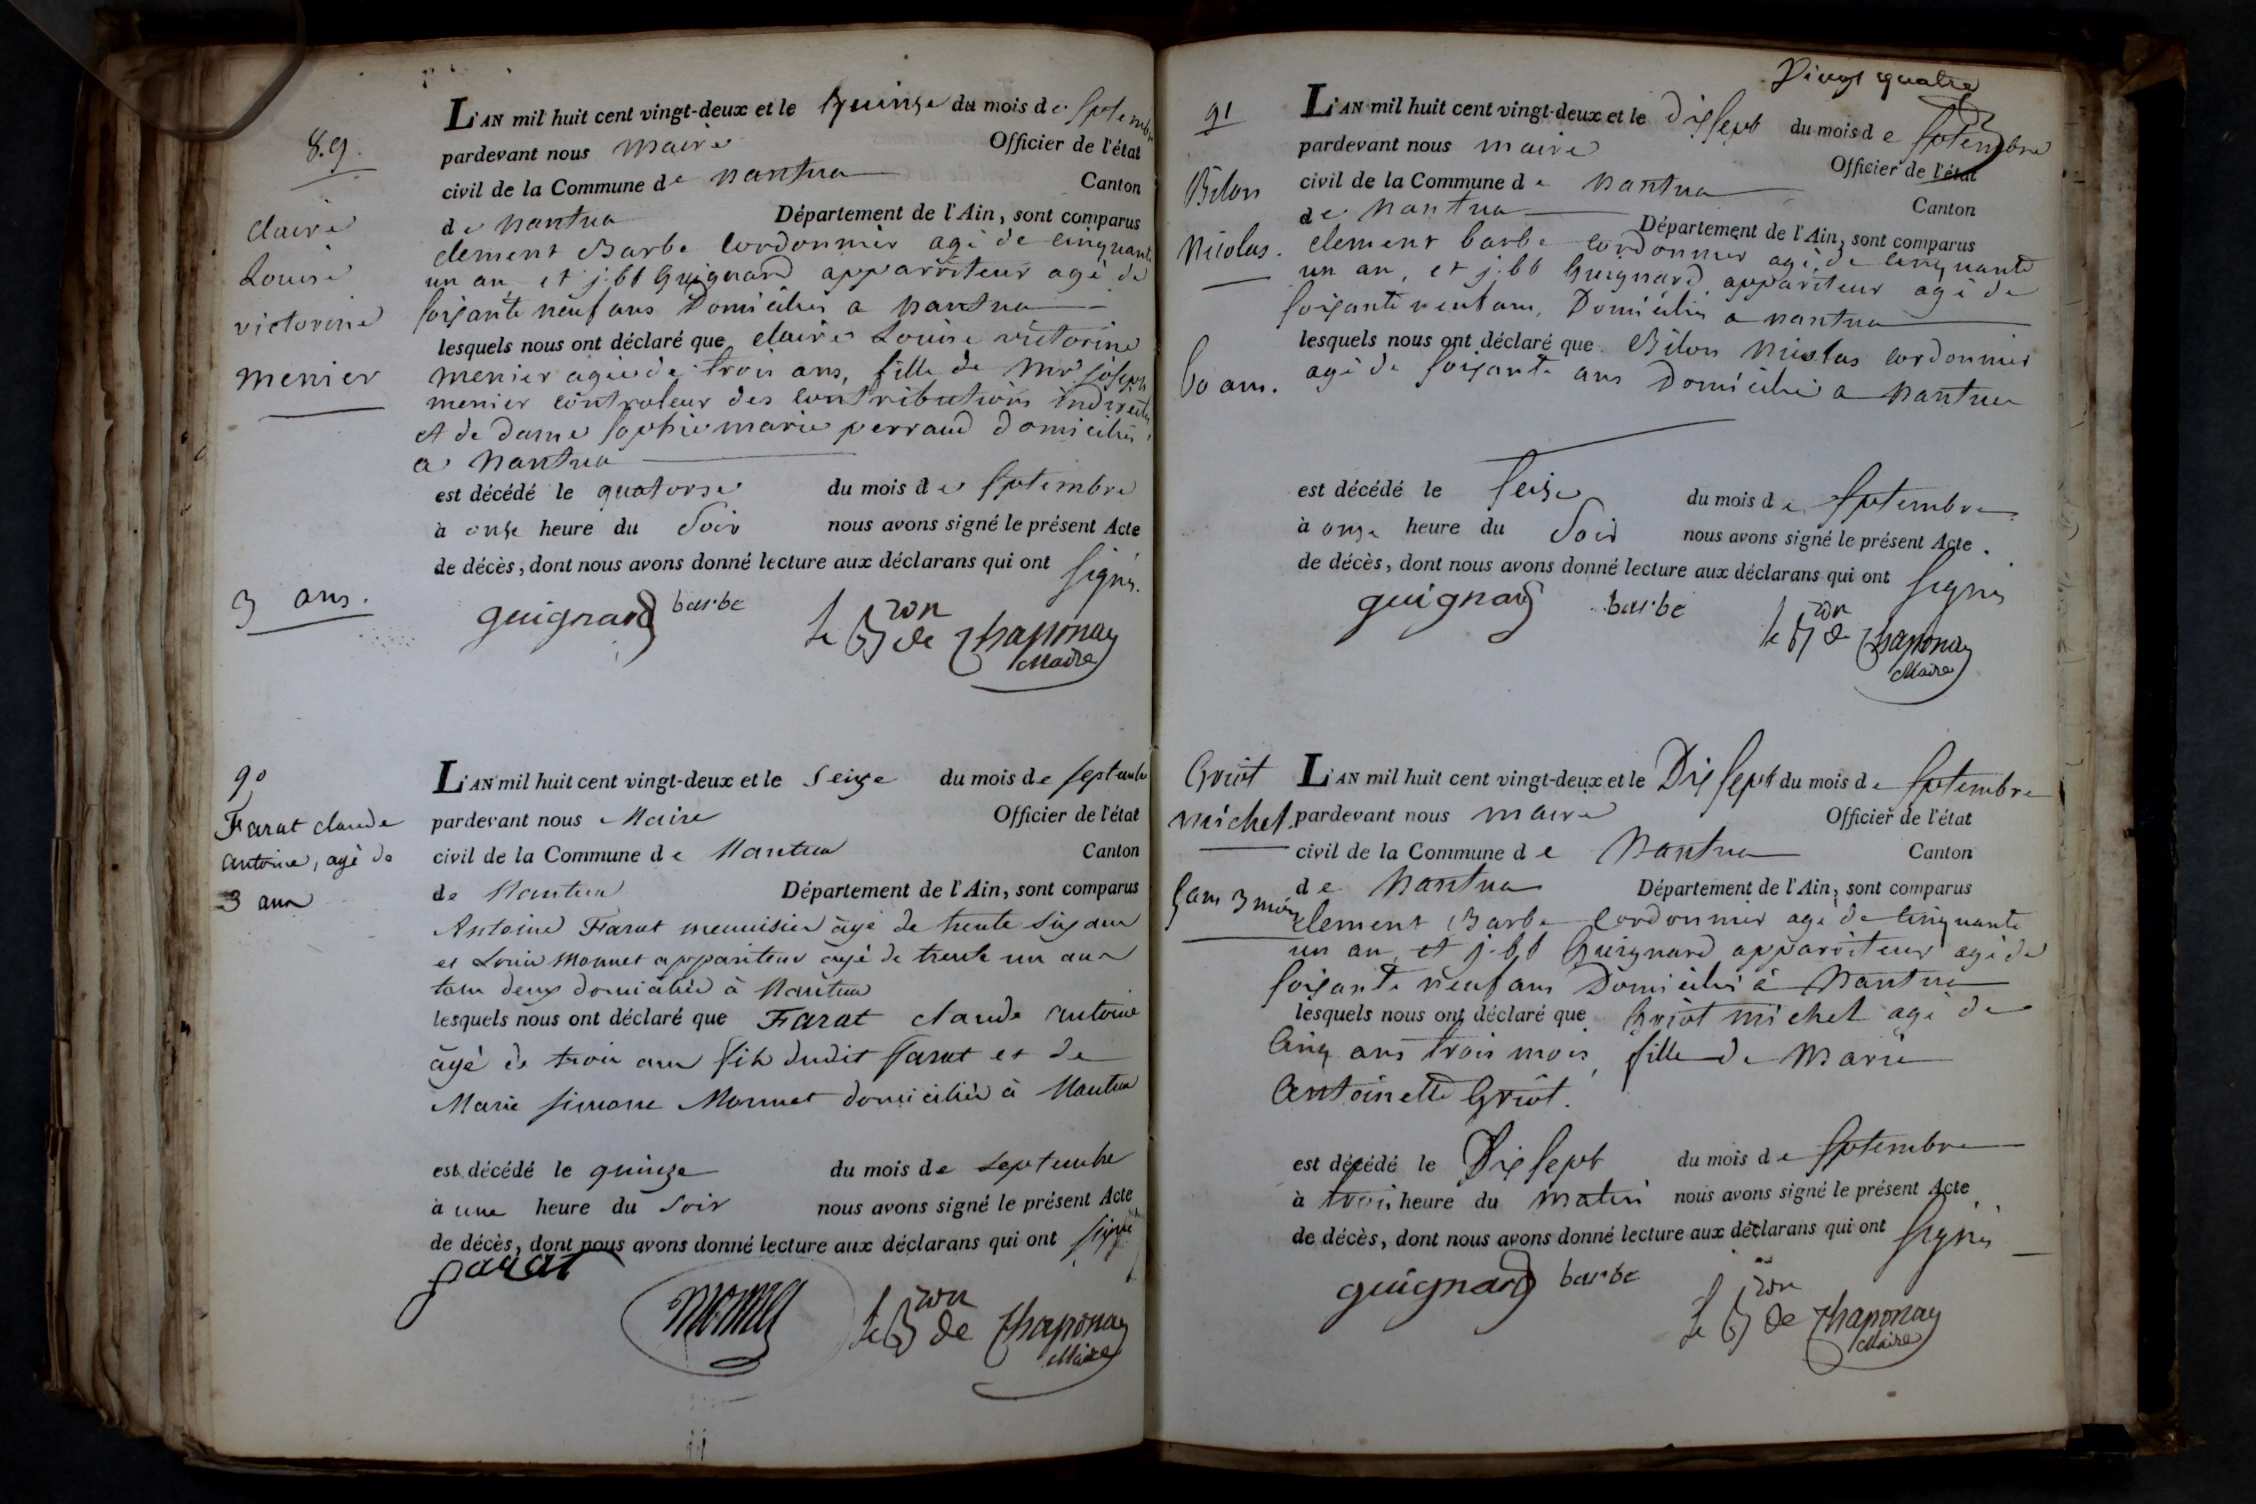 89.
claire
Louise
victorine
menier
3 ans.
L'AN mil huit cent vingt-deux et le quinse du mois de septembre
pardevant nous maire Officier de l'état
civil de la Commune de nantua Canton
de nantua Département de l'Ain, sont comparus
clement Barbe cordonnier agé de cinquante
un an et j. bt Guignard apparriteur agé de
soixante neuf ans Domiciliés a nantua
lesquels nous ont déclaré que claire Louise victorine
menier agée de trois ans, fille de mr joseph
menier controleur des contributions indirectes
et de dame sophie marie perraud domiciliés
a nantua
est décédé le quatorse du mois de septembre
à onse heure du soir nous avons signé le présent Acte
de décès, dont nous avons donné lecture aux déclarans qui ont signés.
guignard barbe le Bon de Chaponay
Maire
90
Farat claude
antoine, agé de
3 ans
L'AN mil huit cent vingt-deux et le seize du mois de septembre
pardevant nous Maire Officier de l'état
civil de la Commune de Nantua Canton
de Nantua Département de l'Ain, sont comparus
Antoine Farat menuisier âgé de trente six ans
et Louis Monnet appariteur âgé de trente un ans
tous deux domiciliés à Nantua
lesquels nous ont déclaré que Farat claude antoine
âgé de trois ans fils dudit farat et de
Marie simone Monnet domiciliés à Nantua
est décédé le quinze du mois de septembre
à une heure du soir nous avons signé le présent Acte
de décès, dont nous avons donné lecture aux déclarans qui ont signé
farat
le Bon de Chaponay
Maire
Vingt quatre
91
Bilon
Nicolas.
60 ans.
L'AN mil huit cent vingt-deux et le Dix sept du mois de septembre
pardevant nous maire Officier de l'état
civil de la Commune de nantua Canton
de nantua Département de l'Ain, sont comparus
clement barbe cordonnier agé de cinquante
un an, et j. bt Guignard appariteur agé de
soixante neuf ans, Domiciliés a nantua
lesquels nous ont déclaré que Bilon Nicolas cordonnier
agé de soixante ans Domicilié a nantua
est décédé le seise du mois de septembre
à onse heure du soir nous avons signé le présent Acte.
de décès, dont nous avons donné lecture aux déclarans qui ont signés
guignard barbe le Bon de Chaponay
Maire
Griot
michel.
5 ans 3 mois
L'AN mil huit cent vingt-deux et le Dix sept du mois de septembre
pardevant nous maire Officier de l'état
civil de la Commune de Nantua Canton
de Nantua Département de l'Ain, sont comparus
clement Barbe cordonnier agé de cinquante
un an, et j. bt Guignard apparriteur agé de
soixante neuf ans Domiciliés à Nantua
lesquels nous ont déclaré que Griot michel agé de
Cinq ans trois mois, fille de Marie
Antoinette Griot.
est décédé le Dix sept du mois de septembre
à trois heure du matin nous avons signé le présent Acte
de décès, dont nous avons donné lecture aux déclarans qui ont signés
guignard barbe le Bon de Chaponay
Maire